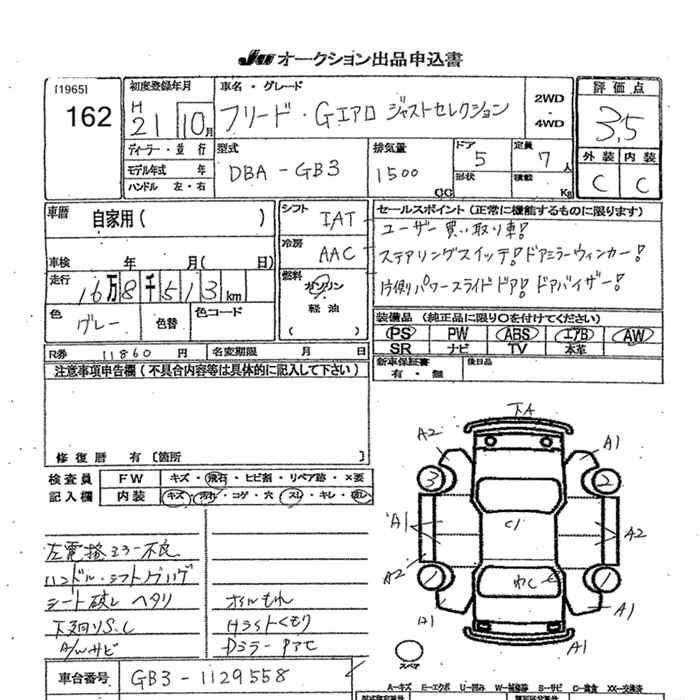 JU オークション出品申込書
[1965]
162
初度登録年月
H
21 10 月
車名・グレード
フリード・Gエアロ ジャストセレクション
2WD
・
4WD
評価点
3.5
外装 内装
C C
ディーラー・並行
モデル年式 年
ハンドル 左・右
型式
DBA-GB3
排気量
1500
CC
ドア
5
形状
定員
7 人
積載
Kg
車歴
自家用( )
車検 年 月( 日)
走行
16万8千513km
色
グレー
色替
色コード
シフト
IAT
冷房
AAC
燃料
ガソリン
・
軽油
( )
セールスポイント(正常に機能するものに限ります)
ユーザー買い取り車!
ステアリングスイッチ!ドアミラーウィンカー!
片側パワースライドドア!ドアバイザー!
装備品(純正品に限り○を付けてください)
PS PW ABS エアB AW
SR ナビ TV 本革
新車保証書
有・無
後日品
R券 11860 円
名変期限 月 日
注意事項申告欄(不具合内容等は具体的に記入して下さい)
修復歴 有[箇所 ]
検査員
記入欄
FW キズ・飛石・ヒビ割・リペア跡・×要
内装 キズ・汚れ・コゲ・穴・スレ・キレ・
左電格ミラー不良
シート破レ ヘタリ
下廻りS.C
A/Wサビ
オイルもれ
Hライトくもり
Dミラー
車台番号
GB3-1129558
下A
A2
A1
3
2
A1
C1
A2
A2
1
1
A1
A1
A1
スペア
A-キズ E-エクボ U-凹み W-補修巻 S-サビ C-腐食 XX-交換済